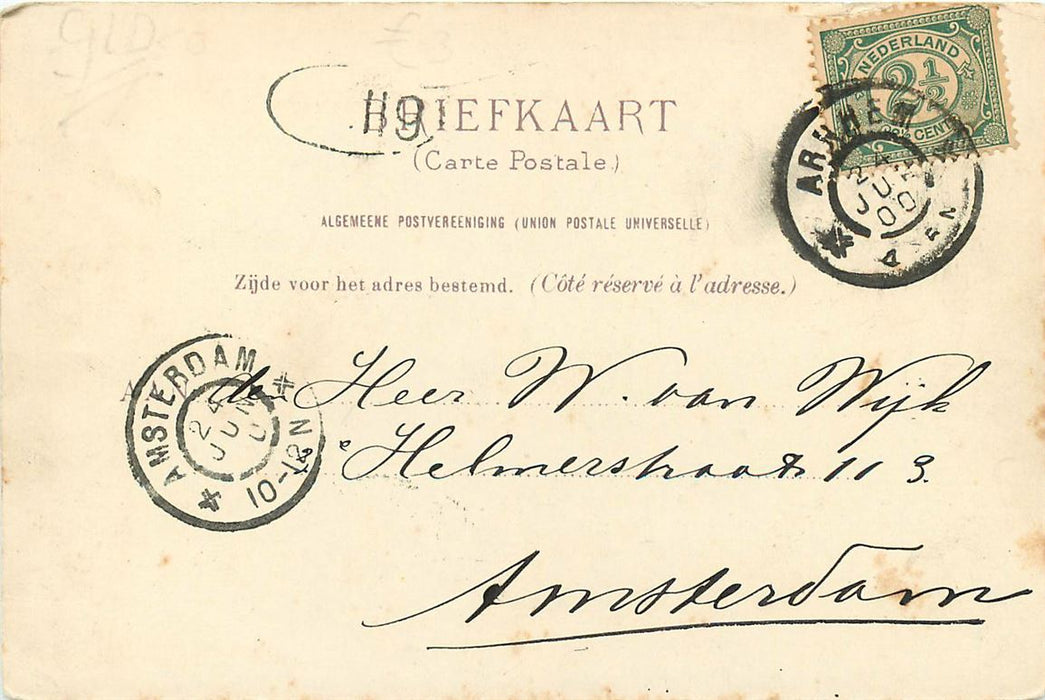 GLD
£3
NEDERLAND
2½
CENT
ARNHEM
24 JUN 00
119
BRIEFKAART
(Carte Postale.)
ALGEMEENE POSTVEREENIGING (UNION POSTALE UNIVERSELLE)
Zijde voor het adres bestemd. (Côté réservé à l'adresse.)
AMSTERDAM
24 JUN
10-12N
den Heer W. van Wijk
Helmerstraat 113.
Amsterdam